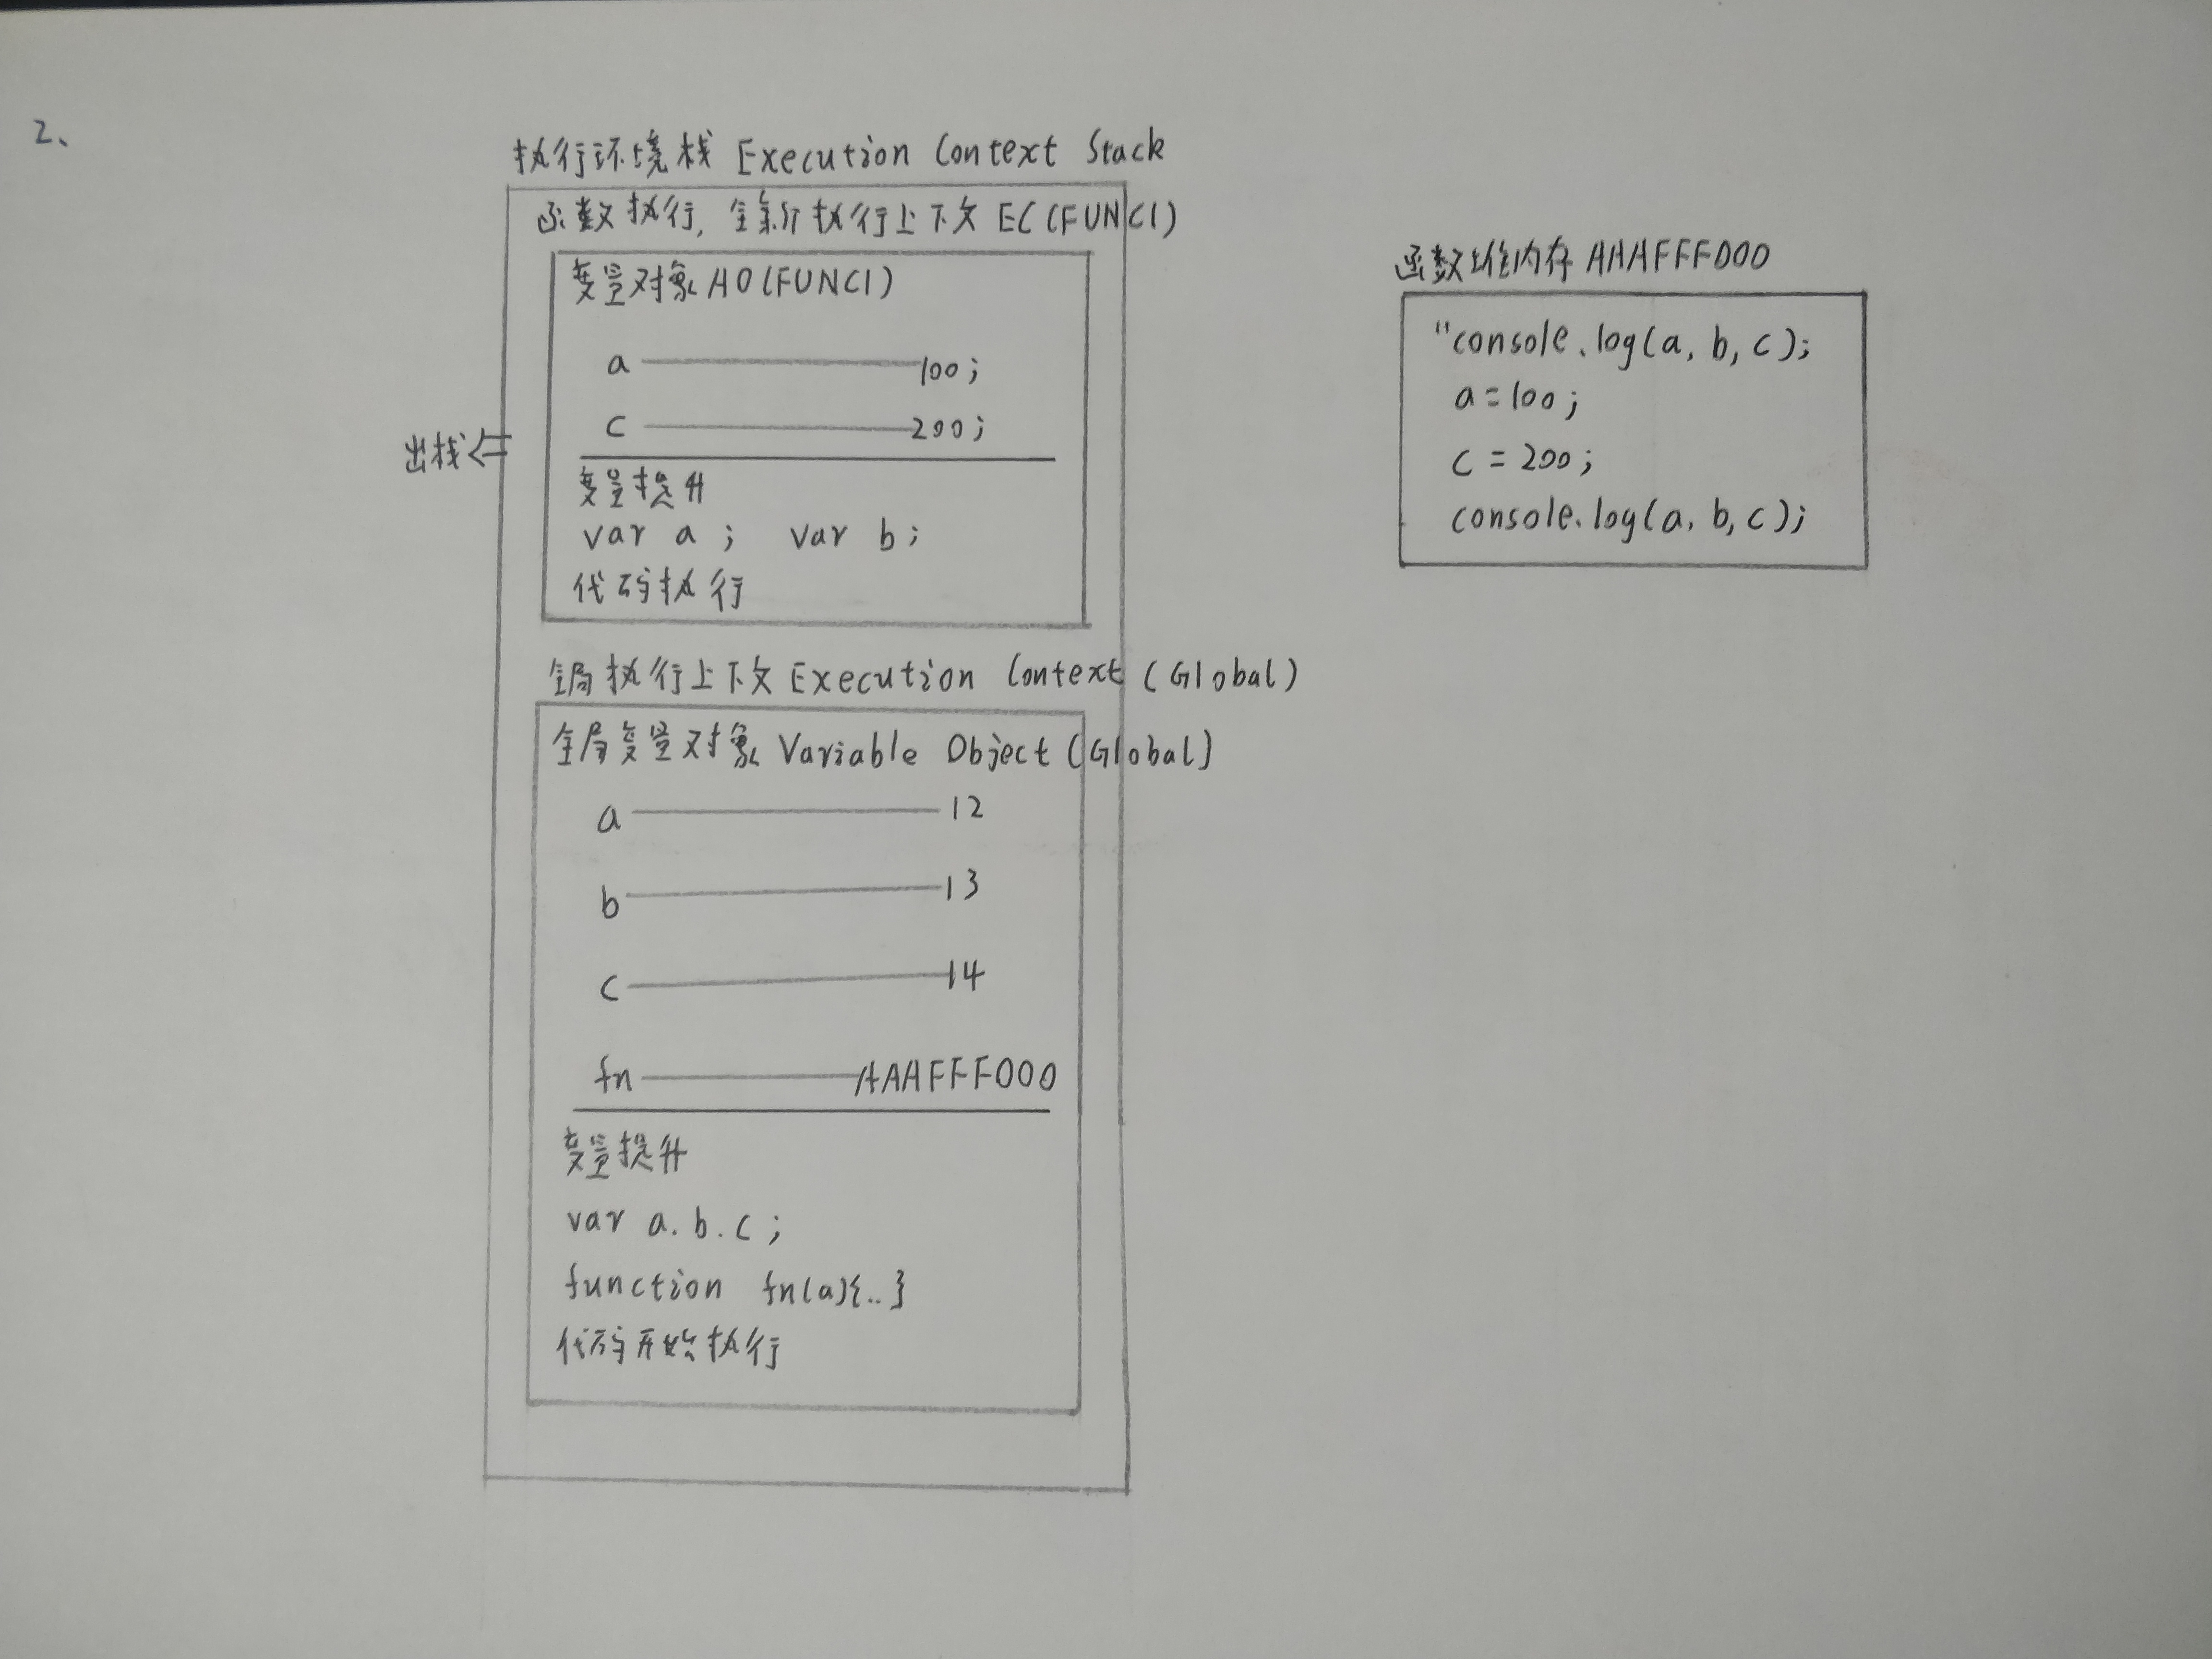 2、
执行环境栈 Execution Context Stack
函数执行, 全新执行上下文 EC(FUNC1)
变量对象 AO(FUNC1)
a 100;
c 200;
出栈
变量提升
var a; var b;
代码执行
全局执行上下文 Execution Context (Global)
全局变量对象 Variable Object (Global)
a 12
b 13
c 14
fn AAAFFF000
变量提升
var a.b.c;
function fn(a){..}
代码开始执行
函数堆内存 AAAFFF000
"console.log(a, b, c);
a=100;
c=200;
console.log(a, b, c);